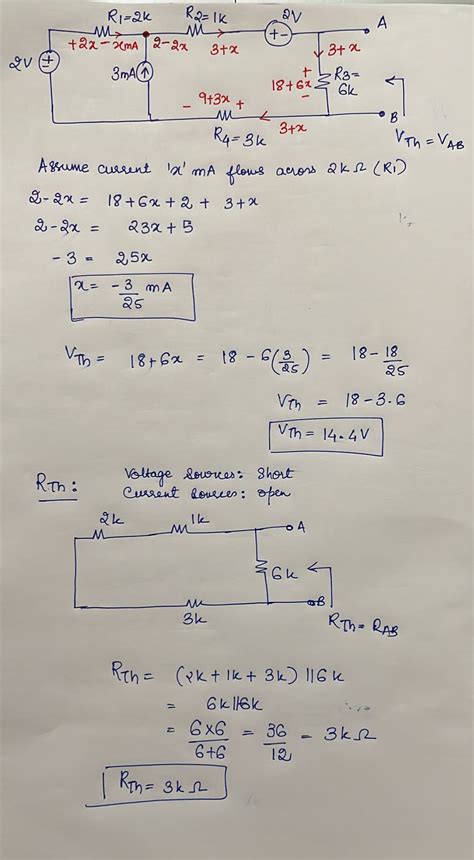 R1=2k R2=1k 2V A
+2x- xmA 2-2x 3+x + - 3+x
2V 3mA + 18+6x - R3=6k
- 9+3x + B
R4=3k 3+x VTh = VAB
Assume current 'x' mA flows across 2kΩ (R1)
2-2x = 18+6x+2+3+x
2-2x = 23x+5
-3 = 25x
x = -3/25 mA
VTh = 18+6x = 18-6(3/25) = 18-18/25
VTh = 18-3.6
VTh = 14.4V
RTh: Voltage Sources: Short
Current Sources: open
2k 1k A
6k
B
3k RTh = RAB
RTh = (2k+1k+3k) ||6k
= 6k||6k
= 6×6/6+6 = 36/12 = 3kΩ
RTh = 3kΩ